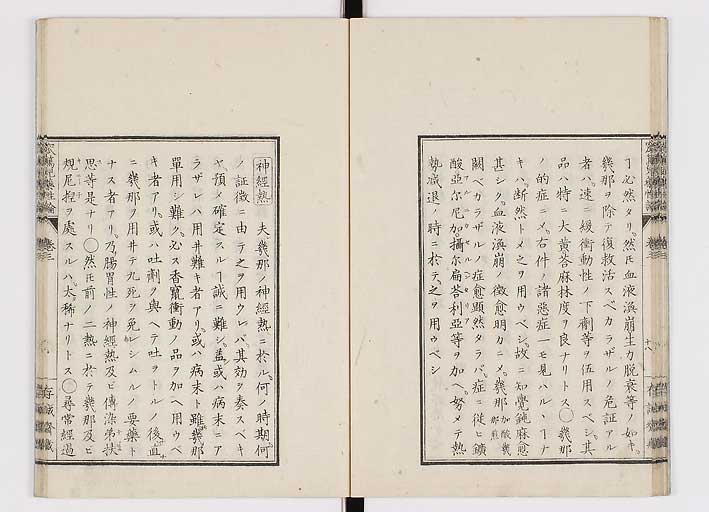 ヿ必然タリ。然圧血液渙崩生力脱衰等ノ如キ。
幾那ヲ除テ復救活スベカラザルノ危証アル
者ハ。速ニ緩衝動性ノ下劑等ヲ伍用スベシ。其
品ハ特ニ大黄荅麻林度ヲ良ナリトス○幾那
ノ的症ニメ。右件ノ諸惡症一モ見ハルヽヿナ
キハ。断然トメ之ヲ用ウベシ。故ニ知覺鈍麻愈
甚シク。血液渙崩ノ徴愈明カニメ。幾那
闕ベカラザルノ症愈顕然タラバ。症ニ従ヒ鑛
酸亞尓尼加。攝尓扁荅利亞等ヲ加ヘ。努メテ熱
勢減退ノ時ニ於テ之ヲ用ウベシ
神經熱 夫幾那ノ神經熱ニ於ル。何ノ時期何
ノ証徴ニ由テ之ヲ用ウレバ。其効ヲ奏スベキ
ヤ預メ確定スルヿ誠ニ難シ。盖或ハ病末ニア
ラザレハ用井難キ者アリ。或ハ病末ト雖幾那
單用シ難ク。必ス香竄衝動ノ品ヲ加ヘ用ウベ
キ者アリ。或ハ吐劑ヲ與ヘテ吐ヲトルノ後。直
ニ幾那ヲ用井テ九死ヲ免レシムルノ要藥ト
ナス者アリ。乃腸胃性ノ神經熱及ビ傳染弟扶
思等是ナリ○然圧前ノ二熱ニ於テ幾那及ヒ
規尼捏ヲ處スルハ。太稀ナリトス○尋常經過
卷三